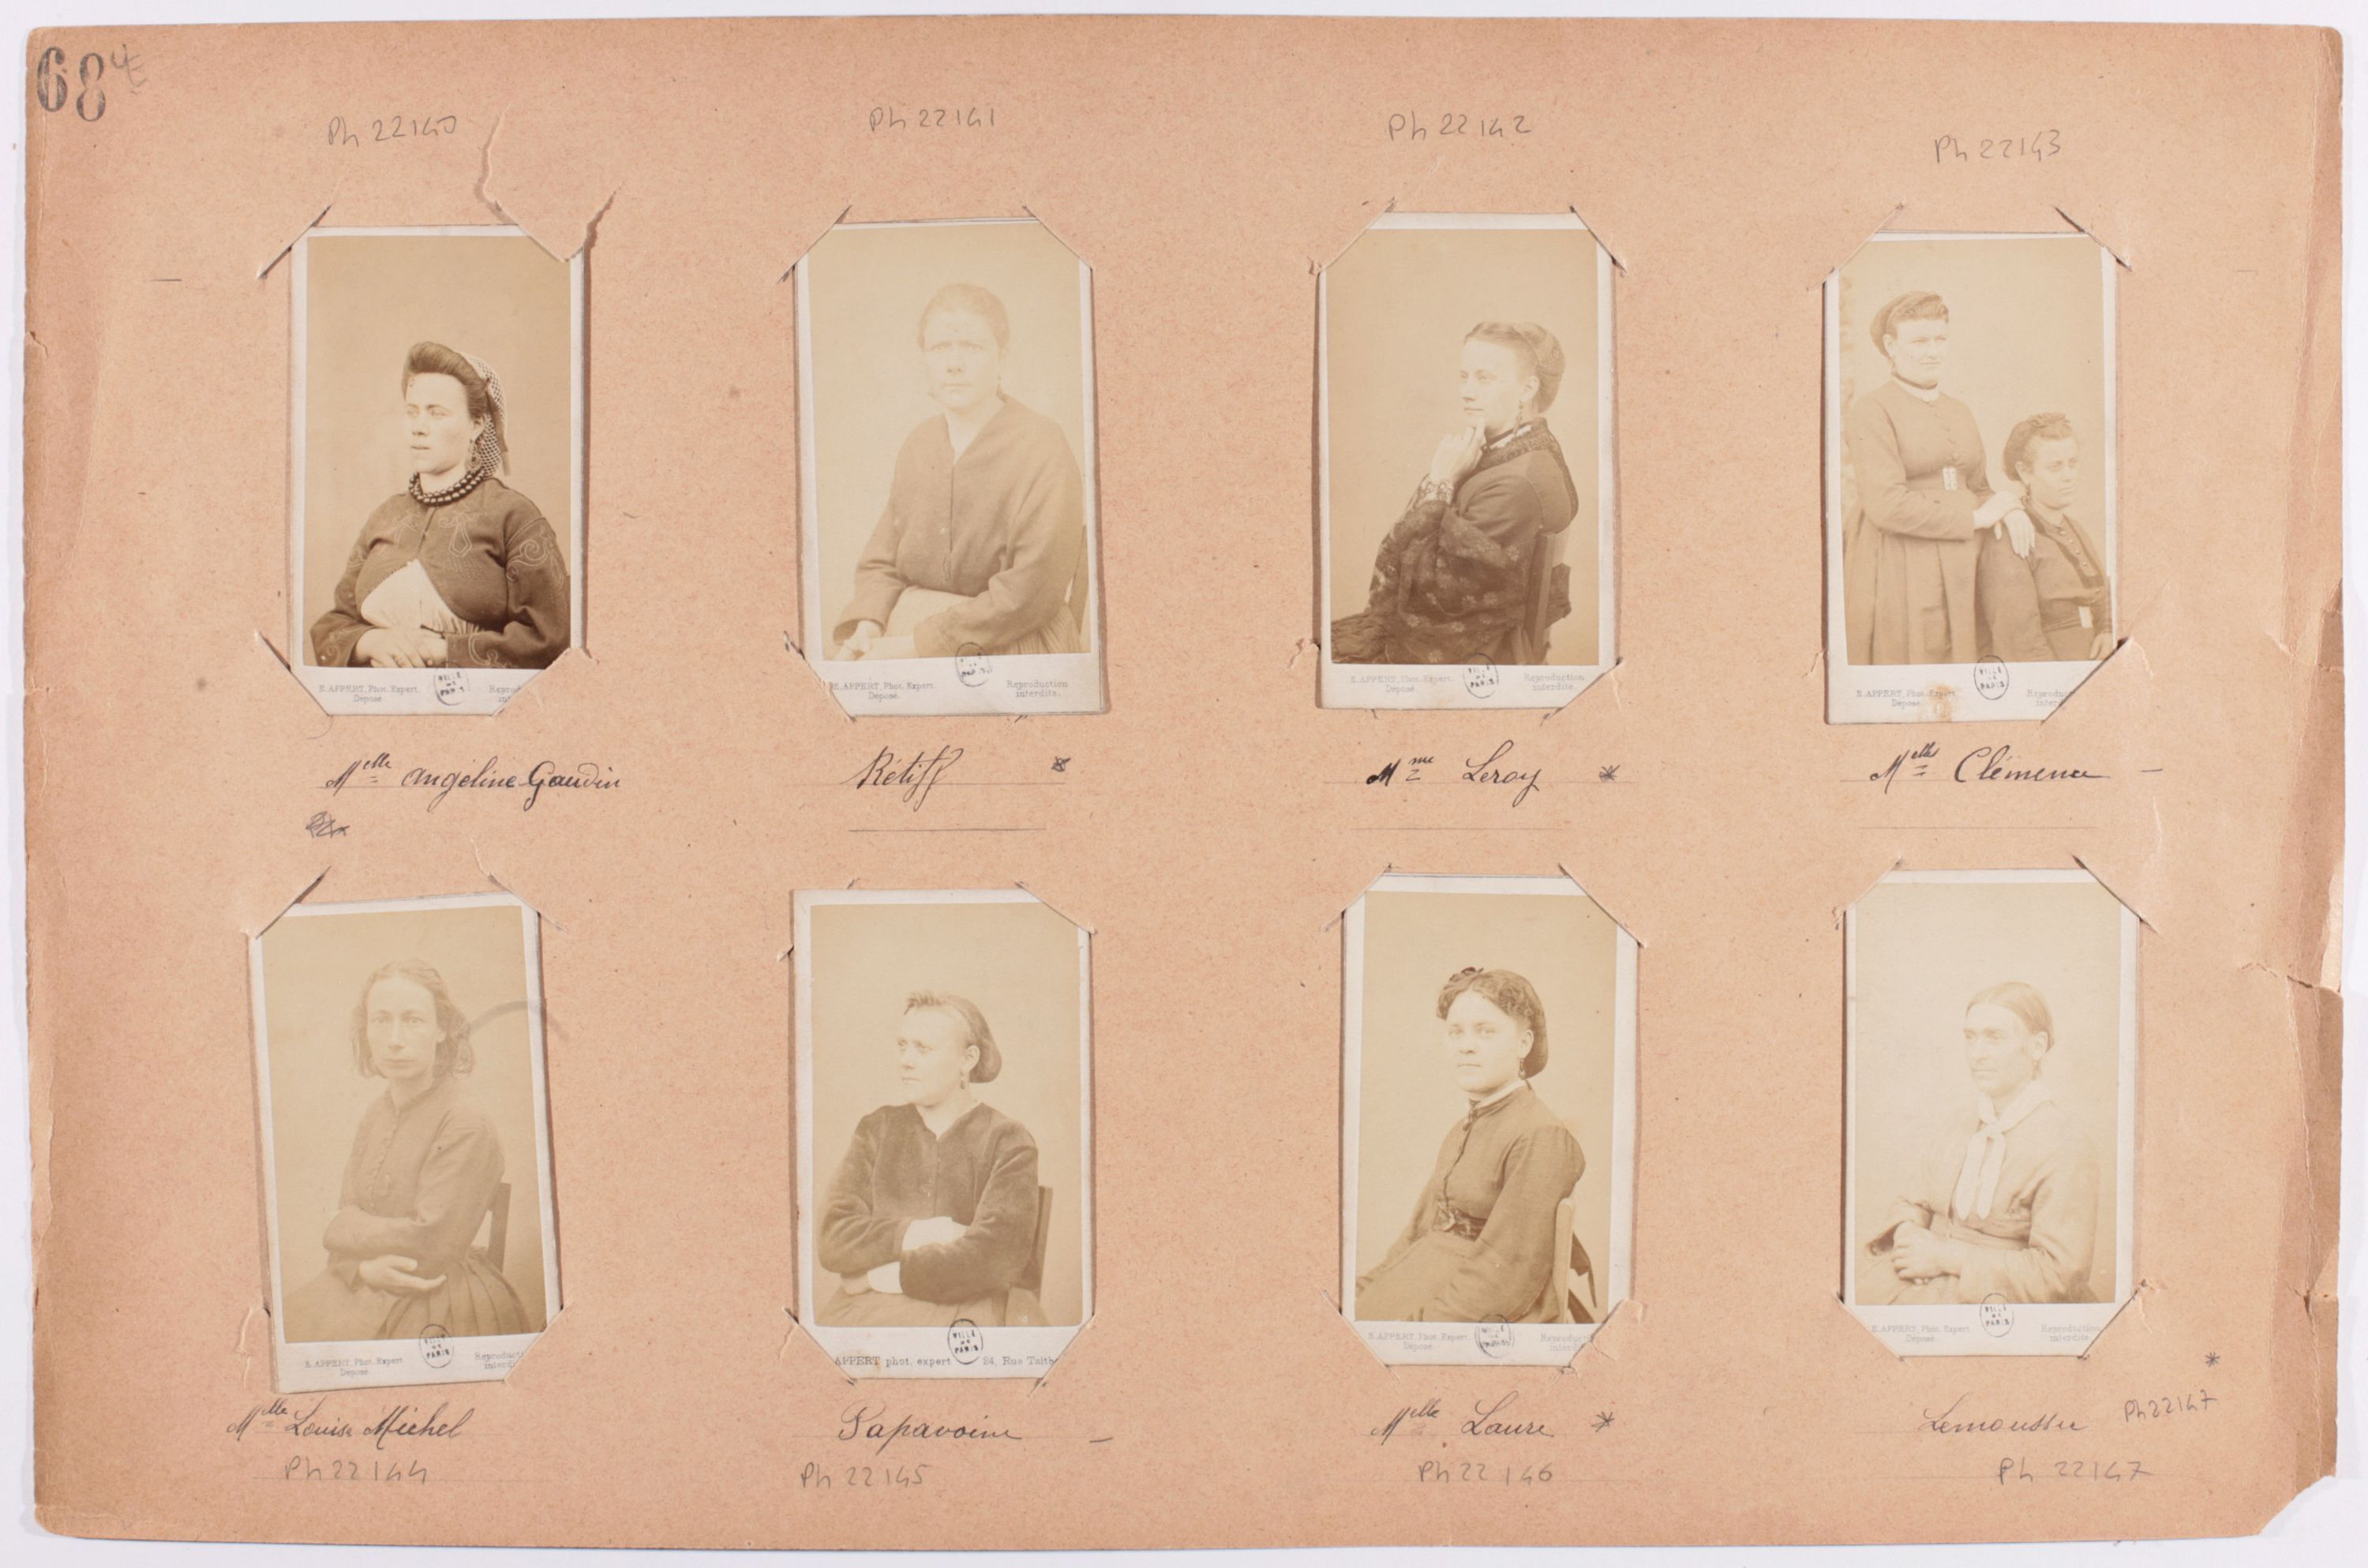 68
Ph 22140
Ph 22141
Ph 22142
Ph 22143
E. APPERT, Phot. Expert.
Déposé
VILLE DE PARIS
Reprod
in
E. APPERT, Phot. Expert.
Déposé.
VILLE DE PARIS
Reproduction
interdite.
E. APPERT, Phot. Expert.
Déposé
VILLE DE PARIS
Reproduction
interdite.
E. APPERT, Phot. Expert.
Déposé
VILLE DE PARIS
Reproduc
inter
Melle Angéline Gaudin
Rétiff
Mme Leroy
Melles Clémence
E. APPERT, Phot. Expert
Déposé
VILLE DE PARIS
Reproduct
interd
APPERT phot. expert
VILLE DE PARIS
24, Rue Taitb
E. APPERT, Phot. Expert.
Déposé
VILLE DE PARIS
Reproduct
inter
E. APPERT, Phot. Expert
Déposé.
VILLE DE PARIS
Reproduction
interdite
Melle Louise Michel
Papavoine
Melle Laure
Lemoussu
Ph22147
Ph 22144
Ph 22145
Ph 22146
Ph 22147